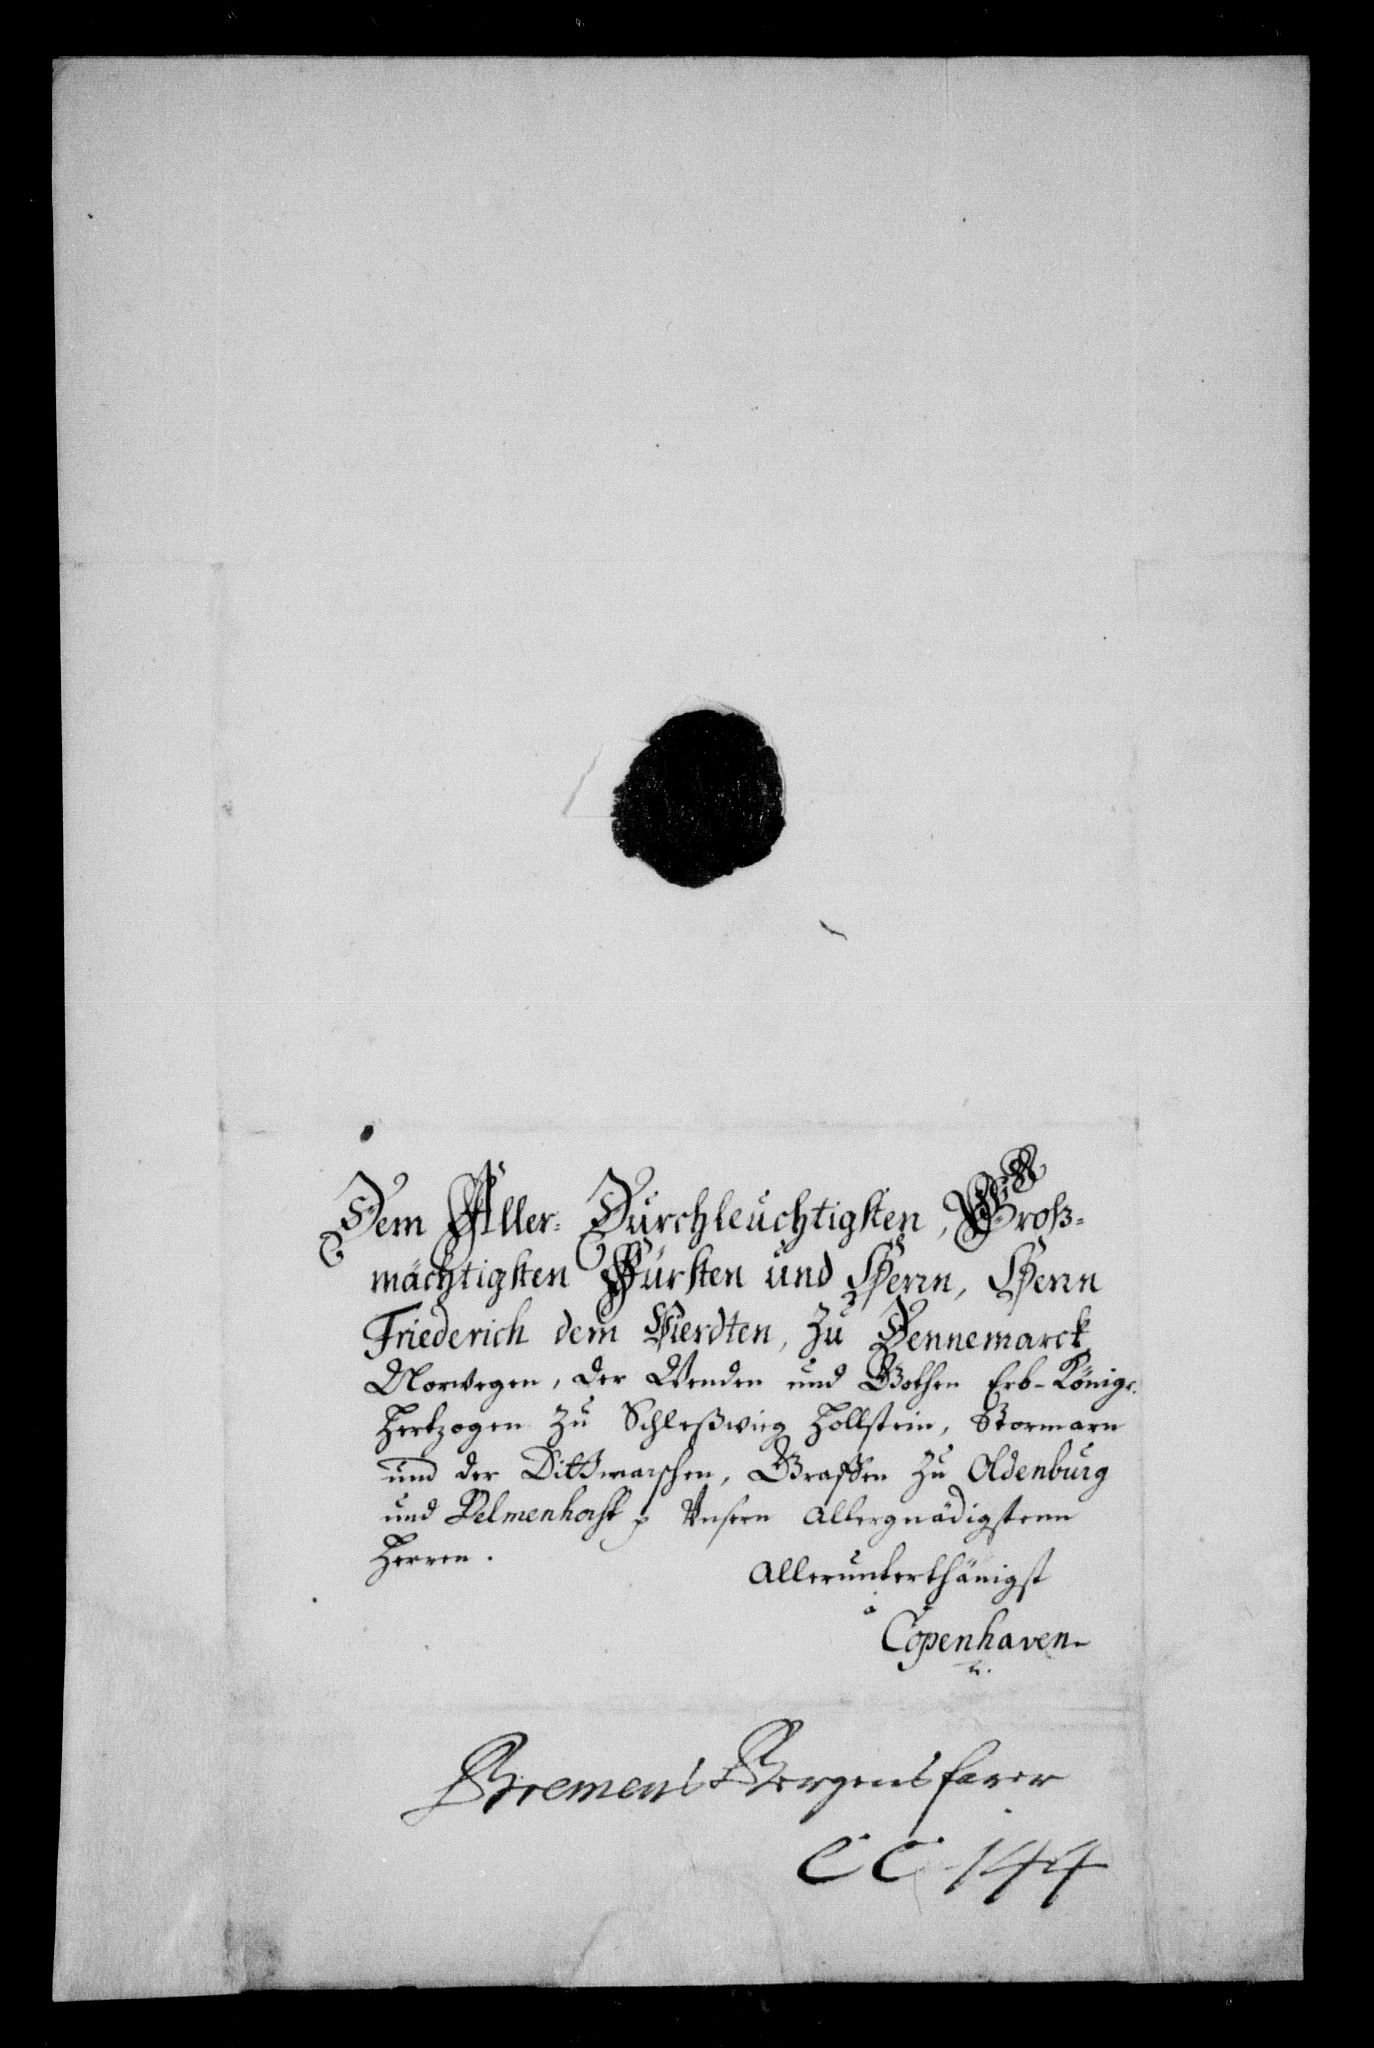 Dem Aller- Durchleuchtigsten, Groß-
mächtigsten Fürsten und Herrn, Herrn
Friederich dem Vierdten, zu Dennemarck
Norwegen, der Wenden und Gothen Erb-König,
Hertzogen zu Schleßwieg Hollstein, Stormarn
und der Dittmarschen, Graffen zu Oldenburg
und Delmenhorst p Unsern Allergnädigstenn
Herren.
Allerunterthänigst
à
Copenhaven
Bremens Bergensfarer
CC 144